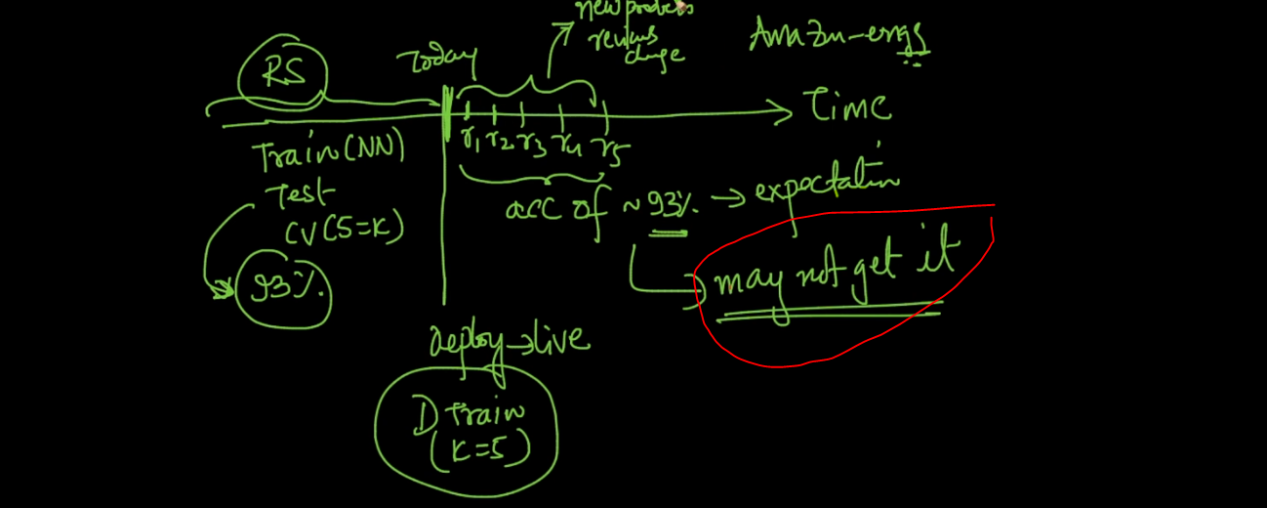 new products
reviews
change
Amazon-engs
RS
Today
Time
r1 r2 r3 r4 r5
Train(NN)
Test
CV(5=K)
93%.
acc of ~93%. → expectation
may not get it
deploy→live
D Train
(K=5)